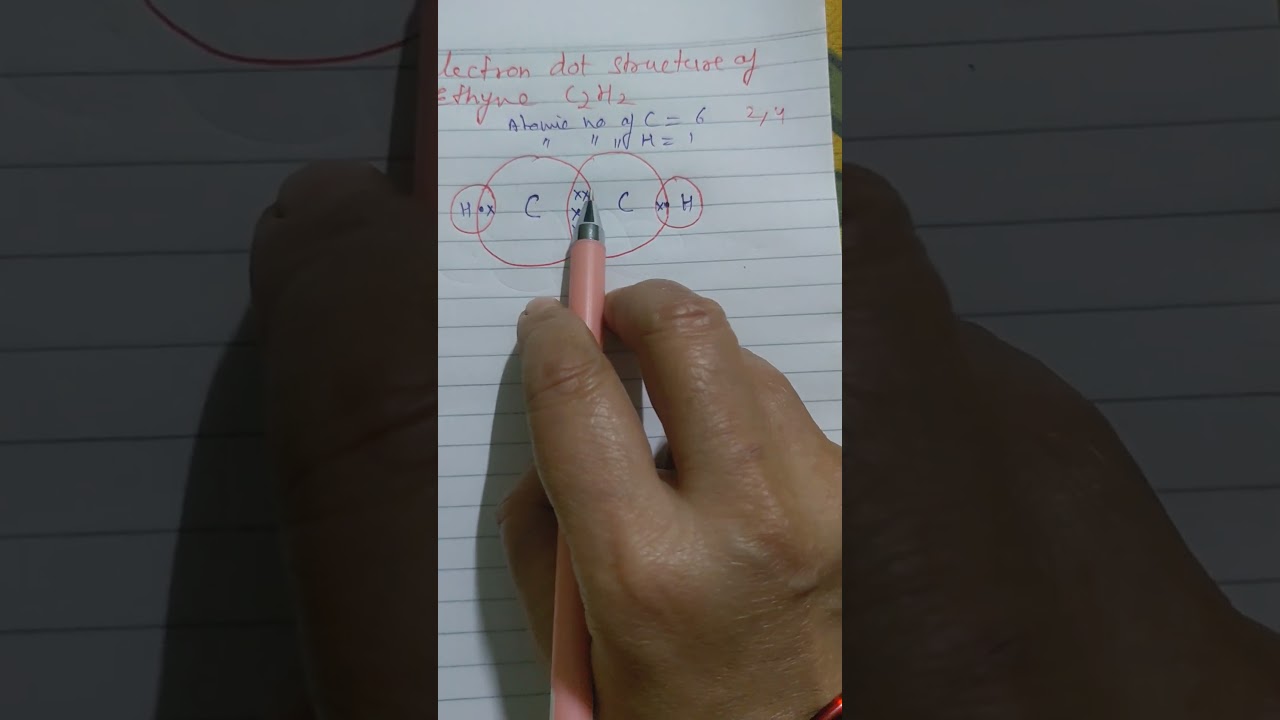 lectron dot structure of
Ethyne C2H2
Atomic no of C = 6 2,4
" " " H = 1
H •x C xx x C x• H